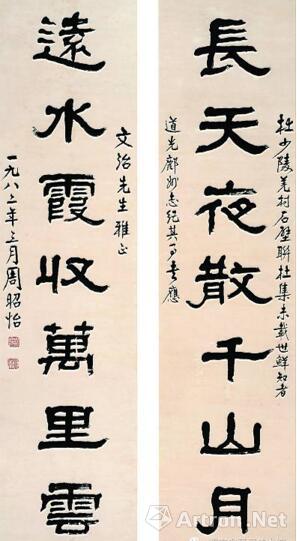 長天夜散千山月
杜少陵羌村石壁聯杜集未載世鮮知者
道光鄜州志紀其
應
遠水霞收萬里雲
文治先生雅正
一九八二年三月周昭怡
Artron.Net